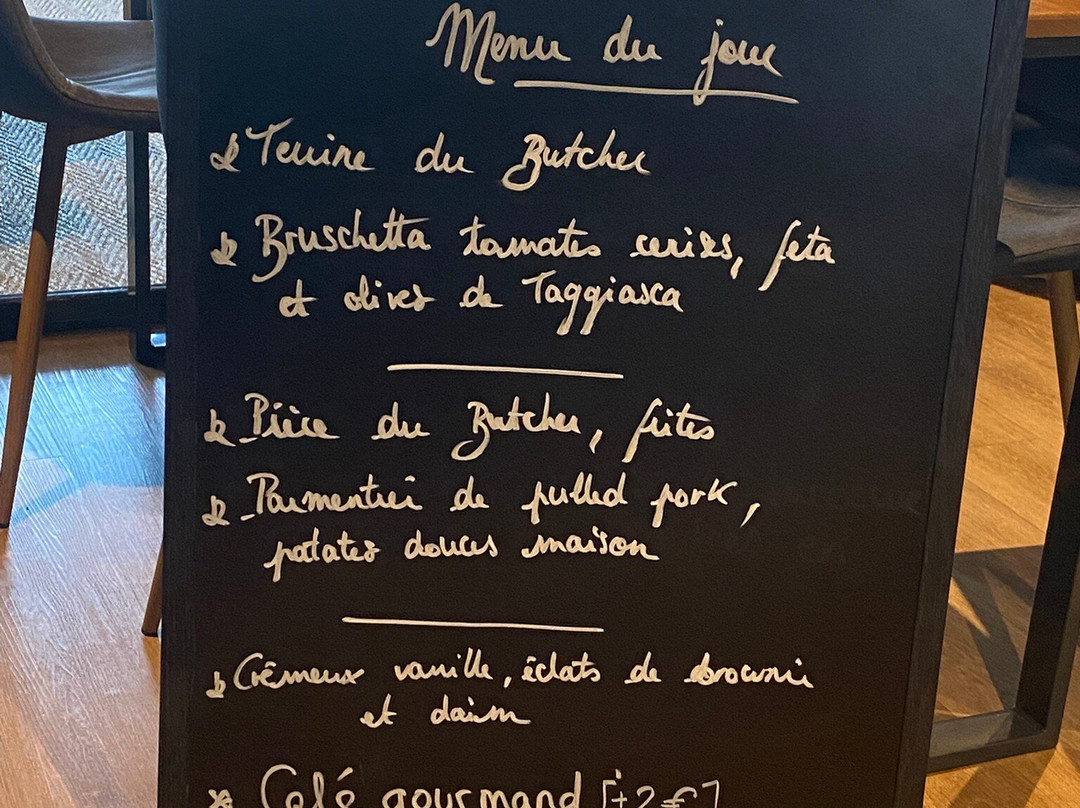 Menu du jour
Terrine du Butcher
Bruschetta tomates cerises, feta
et olives de Taggiasca
Pièce du Butcher, frites
Parmentier de pulled pork,
patates douces maison
Crémeux vanille, éclats de brownie
et daim
* Café gourmand [+2€]